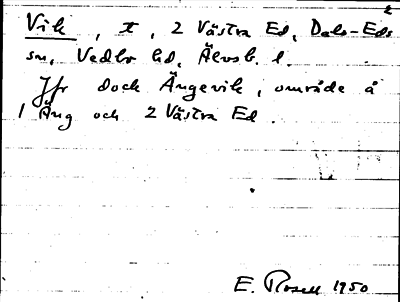 Vik, t, 2 Västra Ed, Dals-Eds
sn, Vedbo hd, Älvsb. l.
Jfr dock Ängevik, område å
1 Äng och 2 Västra Ed.
E. Rosell 1950